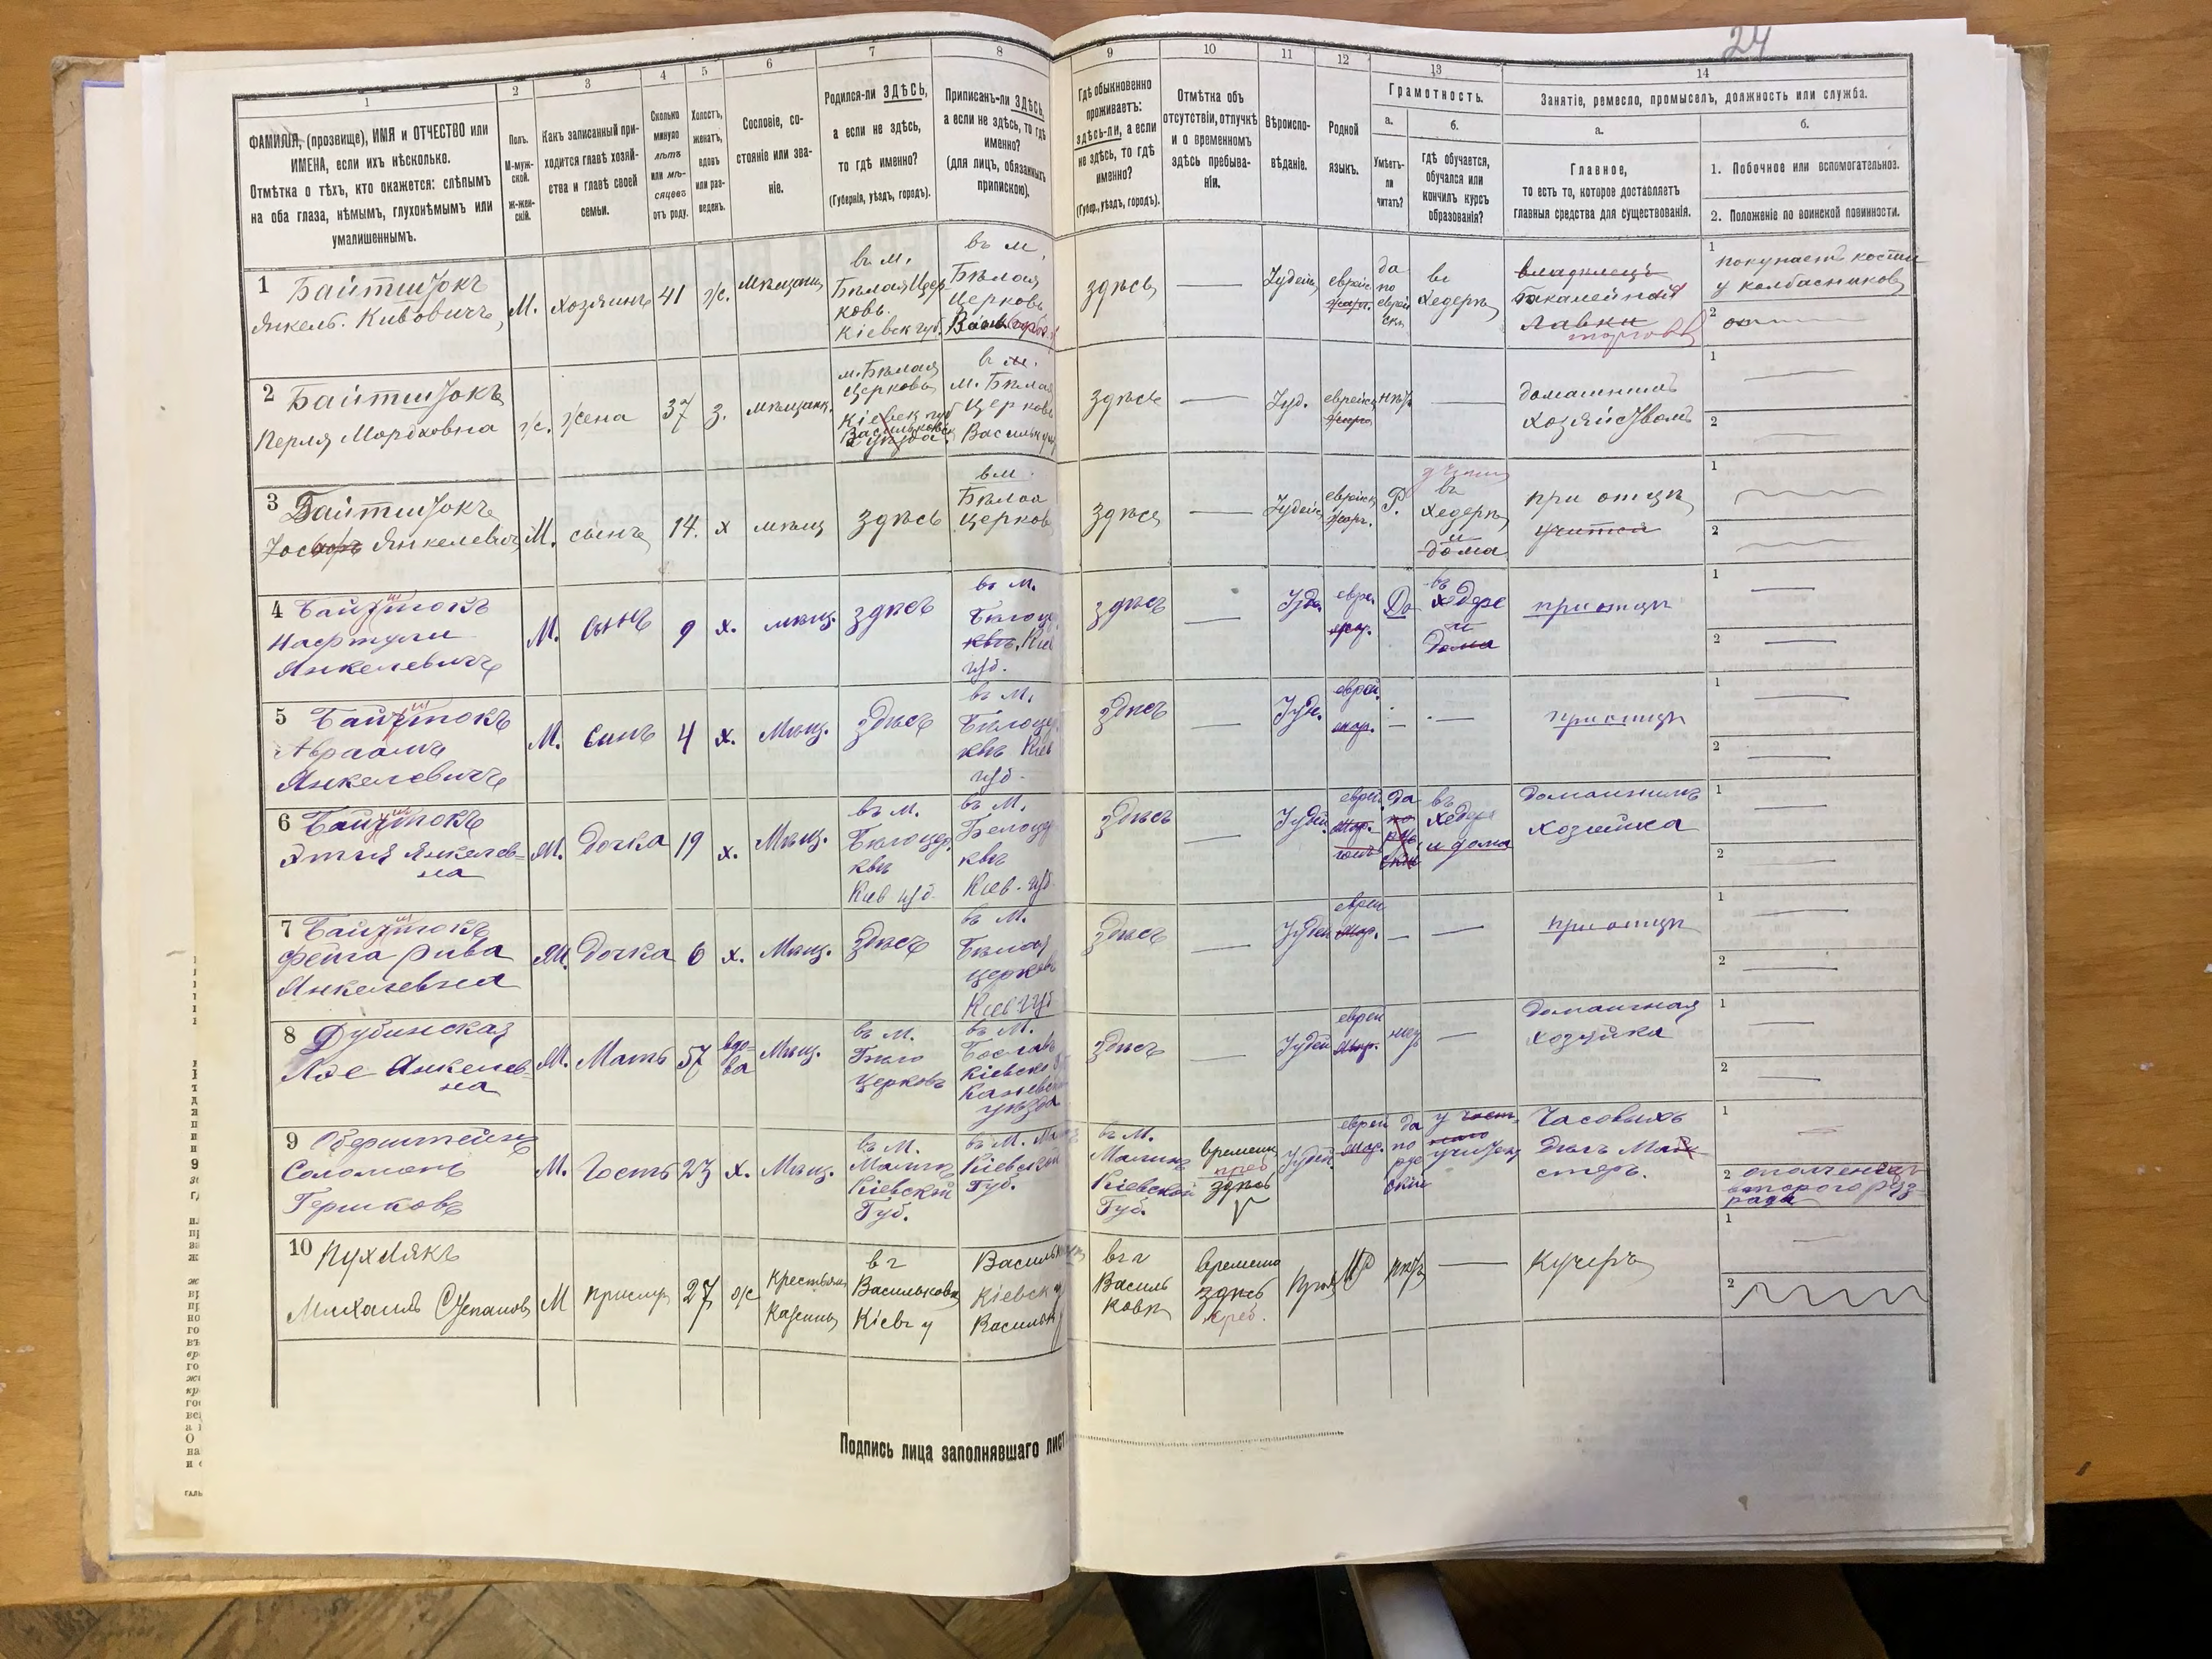 24
1
2
3
4
5
6
7
8
9
10
11
12
13
14
ФАМИЛІЯ, (прозвище), ИМЯ и ОТЧЕСТВО или
ИМЕНА, если ихъ нѣсколько.
Отмѣтка о тѣхъ, кто окажется: слѣпымъ
на оба глаза, нѣмымъ, глухонѣмымъ или
умалишеннымъ.
Полъ.
М-муж-
ской.
ж-жен-
скій.
Какъ записанный при-
ходится главѣ хозяй-
ства и главѣ своей
семьи.
Сколько
минуло
лѣтъ
или мѣ-
сяцевъ
отъ роду.
Холостъ,
женатъ,
вдовъ
или раз-
веденъ.
Сословіе, со-
стояніе или зва-
ніе.
Родился-ли ЗДѢСЬ,
а если не здѣсь,
то гдѣ именно?
(Губернія, уѣздъ, городъ).
Приписанъ-ли ЗДѢСЬ,
а если не здѣсь, то гдѣ
именно?
(для лицъ, обязанныхъ
припискою).
Гдѣ обыкновенно
проживаетъ:
здѣсь-ли, а если
не здѣсь, то гдѣ
именно?
(Губер., уѣздъ, городъ).
Отмѣтка объ
отсутствіи, отлучкѣ
и о временномъ
здѣсь пребыва-
ніи.
Вѣроиспо-
вѣданіе.
Родной
языкъ.
Грамотность.
а.
Умѣетъ-
ли
читать?
б.
гдѣ обучается,
обучался или
кончилъ курсъ
образованія?
Занятіе, ремесло, промыселъ, должность или служба.
а.
Главное,
то есть то, которое доставляетъ
главныя средства для существованія.
б.
1. Побочное или вспомогательное.
2. Положеніе по воинской повинности.
1 Байтштокъ
Янкель Кивовичъ
М.
хозяинъ
41
ж.
мѣщанин
въ м.
Бѣлая Цер
ковь
Кіевск губ.
въ м.
Бѣлая
Церковь
здѣсь
—
Іудейс
еврейс
жарг.
да
по
еврей
ски
въ
хедерѣ
владѣлецъ
бакалейной
лавки
торгов
1 покупаетъ кости
у колбасниковъ
2
2 Байтштокъ
Перля Мордковна
ж.
жена
37
з.
мѣщанк.
м. Бѣлая
Церковь
Кіевск губ
Васильковск
уѣзда
въ м.
м. Бѣлая
Церковь
Васильк у
здѣсь
—
Іуд.
еврейс
жарго
нѣтъ
—
домашнимъ
хозяйством
1
2
3 Байтштокъ
Янкелевичъ
М.
сынъ
14.
х
мѣщ
здѣсь
вм.
Бѣлая
Церковь
здѣсь
—
Іудейс
еврейск
жарг.
Р.
въ
хедерѣ
и
дома
при отцѣ
учится
1
2
4 Байтштокъ
Нафтули
Янкелевичъ
М.
сынъ
9
х.
мѣщ.
здѣсь
въ м.
Бѣлоце
квѣ, Кіев
губ.
здѣсь
—
Іуде.
евре.
жар.
Да
въ
хедере
и
дома
при отцѣ
1
2
5 Байтштокъ
Авраамъ
Янкелевичъ
М.
сынъ
4
х.
Мѣщ.
здѣсь
въ м.
Бѣлоце
квѣ Кіев
губ.
здѣсь
—
Іуд.
еврей.
жар.
—
—
при отцѣ
1
2
6 Байтштокъ
Этля Янкелев=
на
М.
дочка
19
х.
Мѣщ.
въ м.
Бѣлоцер
квѣ
Кіев губ.
въ м.
Белоцер
квѣ
Кіев. губ.
здѣсь
—
Іудей.
еврей
да
по
рус
ски
въ
хедере
и дома
домашнимъ
хозяйка
1
2
7 Байтштокъ
Фейга Рива
Янкелевна
М.
дочка
6
х.
Мѣщ.
здѣсь
въ м.
Бѣлая
церковь
Кіев губ
здѣсь
—
Іудей
еврей
жар.
—
—
при отцѣ
1
2
8 Дубинская
Янкелев=
на
М.
Мать
57
вдо=
ва
Мѣщ.
въ м.
Бѣло
церковь
въ м.
Бославъ
Кіевско
Каневско
уѣзда
здѣсь
—
Іудей
еврей
жар.
нет
—
домашная
хозяйка
1
2
9 Оберштейнъ
Соломонъ
Гершковъ
М.
Гость
23
х.
Мѣщ.
въ м.
Малинъ
Кіевской
Губ.
въ м.
Кіевской
Губ.
въ м.
Малинъ
Кіевской
Губ.
времен
преб
здѣсь
Іудей
еврей
жар.
да
по
рус
ски
у част-
наго
учителя
Часовыхъ
дѣлъ Ма
стеръ.
1
2 ополченецъ
второго раз-
ряда
10 Пухлякъ
Михаилъ Степановъ
М
прислуг
27
ж
крестьян
Казенны
в г
Васильковѣ
Кіевъ г
Кіевск у
Васильк у
в г
Василь
ковѣ
временно
здѣсь
преб.
нѣтъ
—
Кучеръ
1
2
Подпись лица заполнявшаго лист